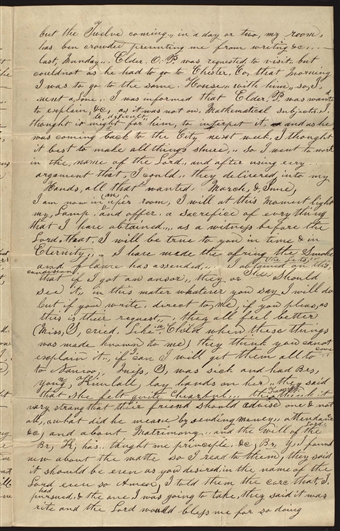 but the Twelve coming,, in a day or two, my room
has ben crowded preventing me from writing &c:—
last, Sunday,, Elder, O. P. was requested to visit. but
couldnot as he had to go to Chester Co, that morning
I was to go to the same. House with him, so, I
went alone. I was informed that Elder, P. was wanted
to explain, &c, as it was not on, Mathematical subjects. I
thought it might for him, to interpret it. and as he was
coming back to the City next week, I thought
it best to make all things shure,, so I went to work
in the name of the Lord, and after using evry
argument that, I could. they delivered into my
Hands, all that wanted. March, & June,
I am now in upper room, I will at this moment light
my, Lamp. and offer. a Sacrefice of evrything
that I have obtained,, as a witness before the
Lord, that. I will be true to you in time & in
Eternity,, I have made the ofring the Smoke
and flame has assended,,
that if I got an ansor,, they or She should
see it in this mater whatever you say I will do
but if you write. direct to, me, if you please, as
this is their request,, they all feel better
(Miss, O, cried. Like a Childe when these things
was made known to me) they think you cannot
explain it, if can I will get them all
to Nauvoo,, Miss, O, was sick and had Brs,
young and Kimball lay hands on her,, she said
that She felt quite
vary strang that their friend should advise one & not
all, what did he meane by sending mony,,
&c, and about Matrimony,, and the Will of the
Br, H, has. thught me principle. &c; Br, Y,
new about the matte so I read to them, they said
it should be even as you desired in the name of the
Lord even so Amen, I told them the corse that I
pursued, & the one I was going to take, they said it was
rite and the Lord would bless me for so doing